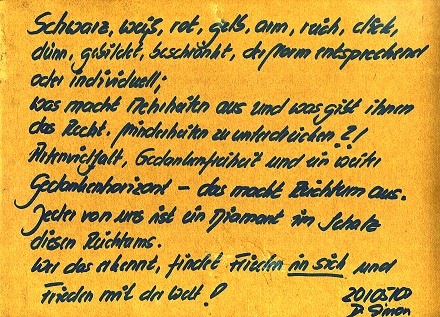 Schwarz, weiß, rot, gelb, arm, reich, dick,
dünn, gebildet, beschränkt, der Norm entsprechend
oder individuell;
was macht Mehrheiten aus und was gibt ihnen
das Recht, Minderheiten zu unterdrücken?!
Artenvielfalt, Gedankenfreiheit und ein weiter
Gedankenhorizont – das macht Reichtum aus.
Jeder von uns ist ein Diamant im Schatz
diesen Reichtums.
Wer das erkennt, findet Frieden in sich und
Frieden mit der Welt!
D. Simon